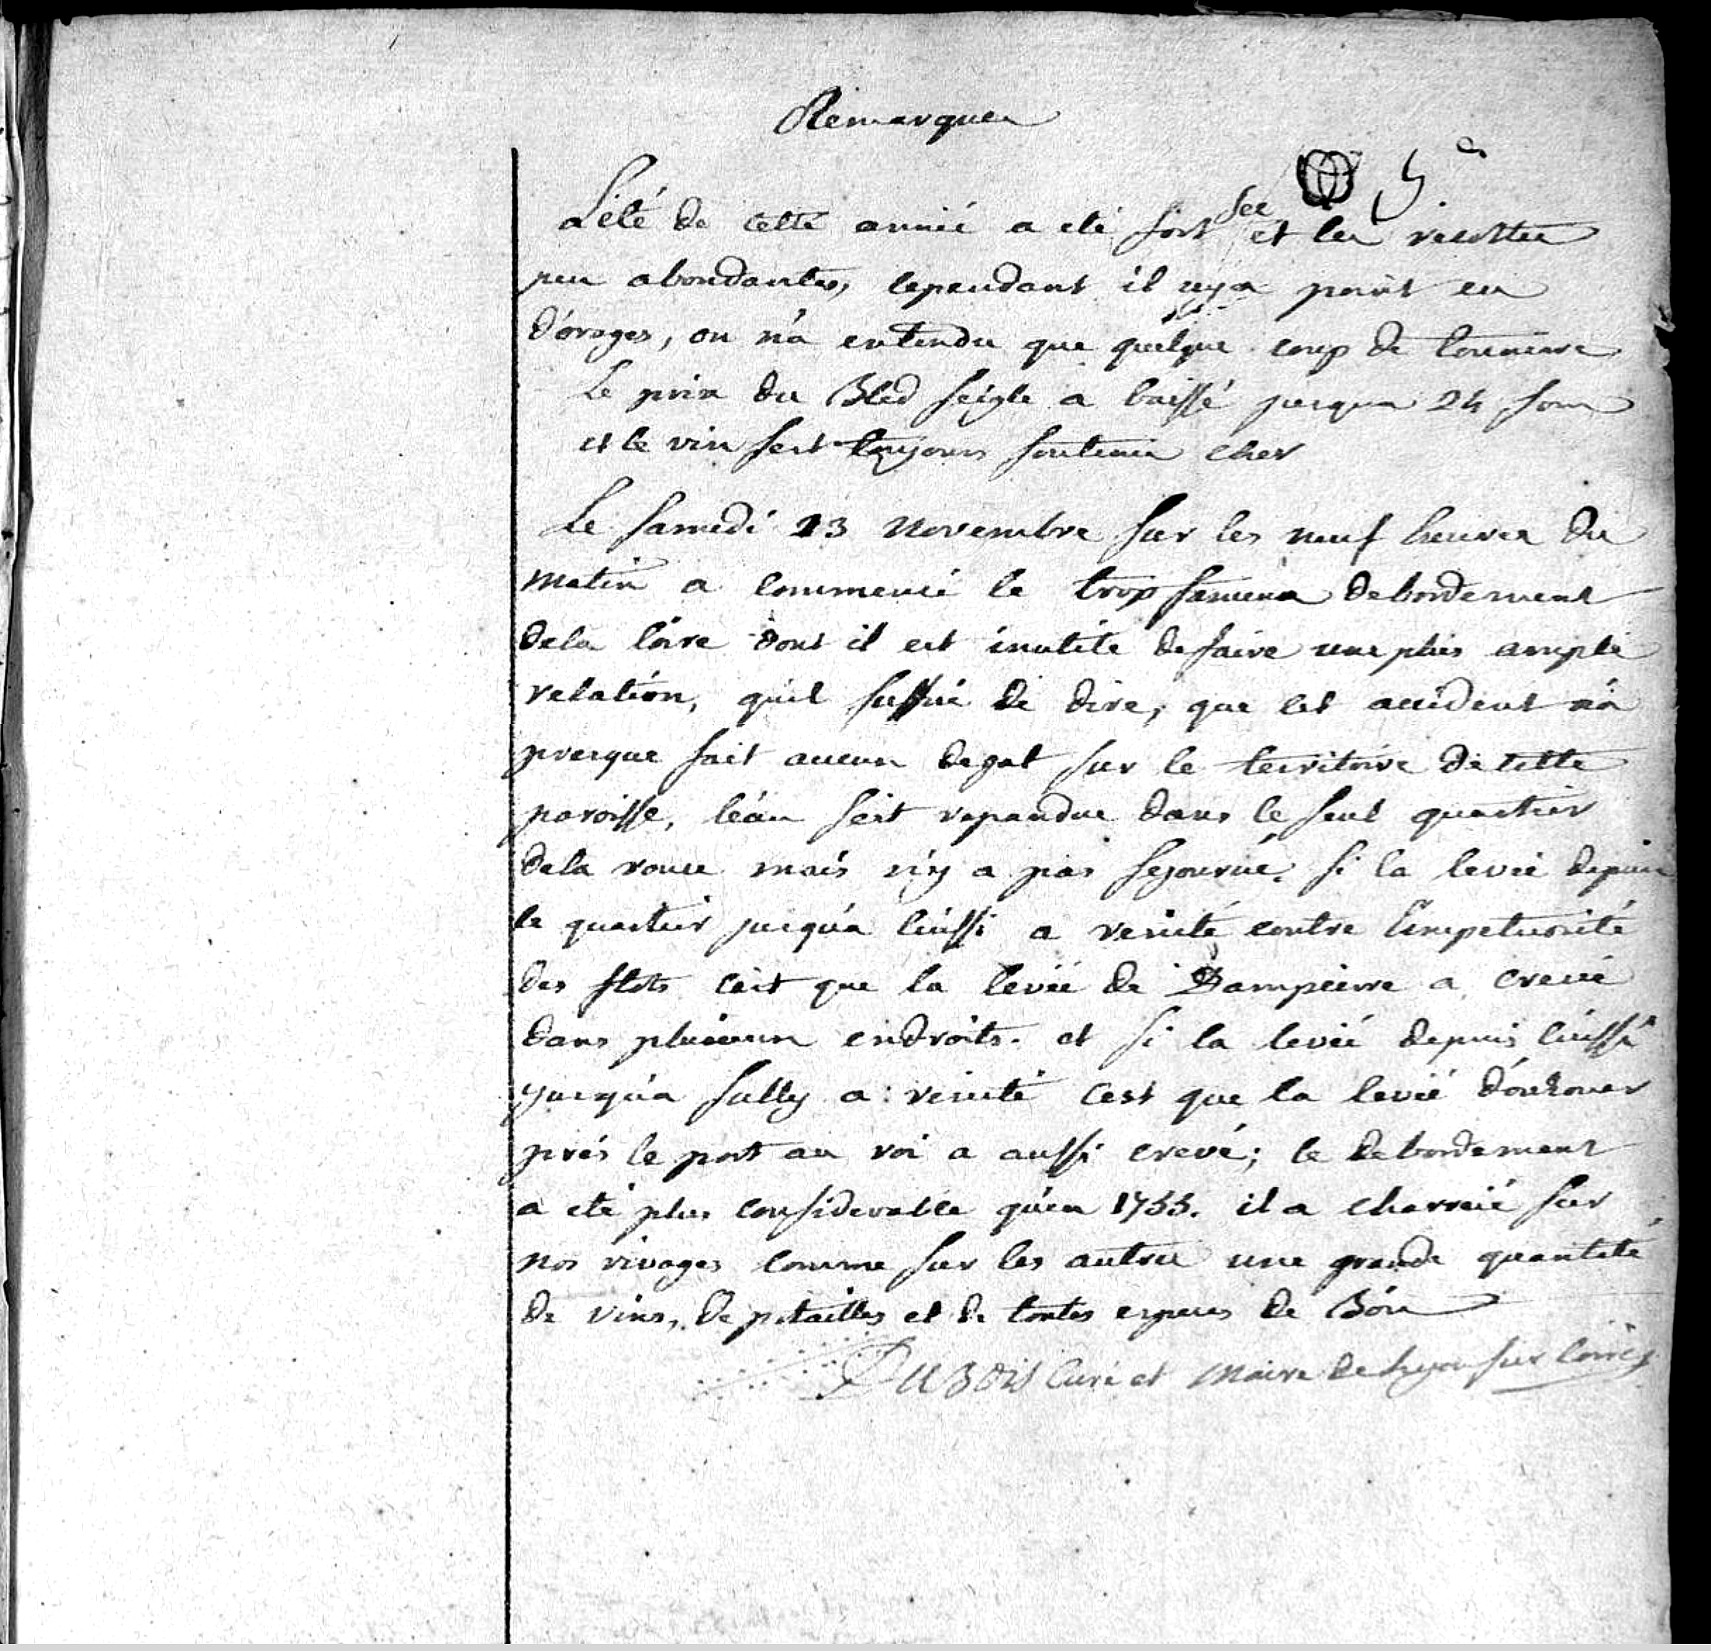 Remarques
5e
L'été de cette année a eté fort sec et les recoltes
peu abondantes, cependant il n'y a point eu
d'orages, on n'a entendu que quelque coup de tonnerre
Le prix du Bled seigle a baissé jusqua 24 sous
et le vin sest toujours soutenu cher
Le samedi 13 novembre sur les neuf heures du
matin a commencé le trop fameux debordement
dela loire dont il est inutile de faire une plus ample
relation, qu'il suffise de dire, que cet accident n'a
presque fait aucun degat sur le territoire de cette
paroisse, l'eau sest repandue dans le seul quartier
dela ronce mais n'y a pas sejourné. si la levée depuis
le quartier jusqu'a cuissi a resisté contre l'impetuosité
des flots cest que la levée de Dampierre a crevé
dans plusieurs endroits. et si la levée depuis cuissi
jusqu'a sully a resisté c'est que la levée d'ouzouer
prés le port au roi a aussi crevé; le debordement
a eté plus considerable qu'en 1733. il a charroié sur
nos rivages comme sur les autres une grande quantité
de vins, de futailles et de toutes especes de Bois
DUBOIS Curé et Maire de Lyon sur Loire